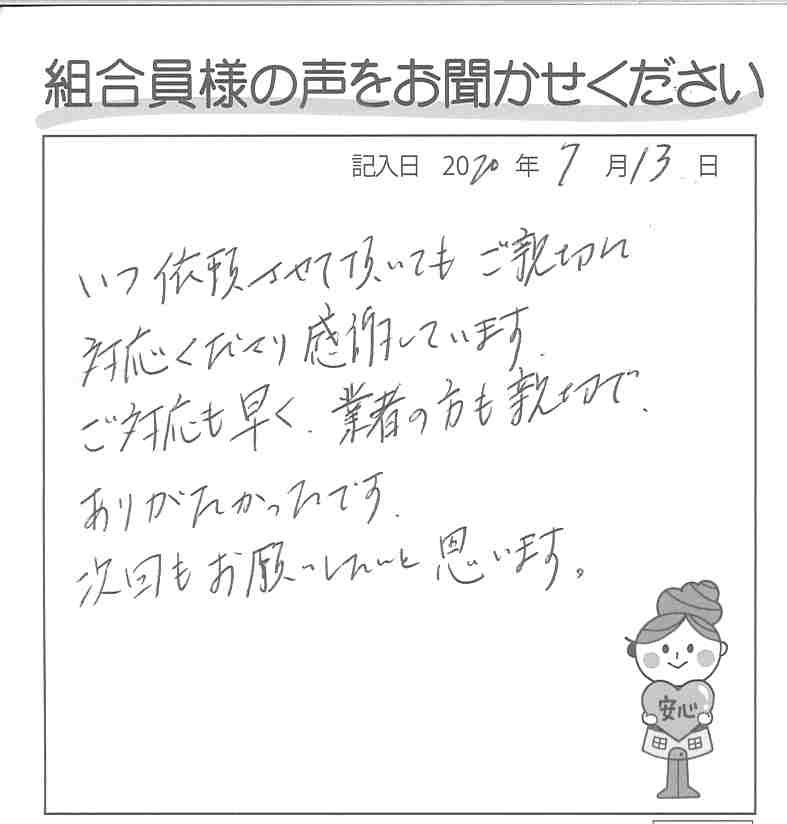 組合員様の声をお聞かせください
記入日 2020年 7月13日
いつ依頼させて頂いてもご親切に
対応くださり感謝しています.
ご対応も早く.業者の方も親切で、
ありがたかったです.
次回もお願いしたいと思います。
安心